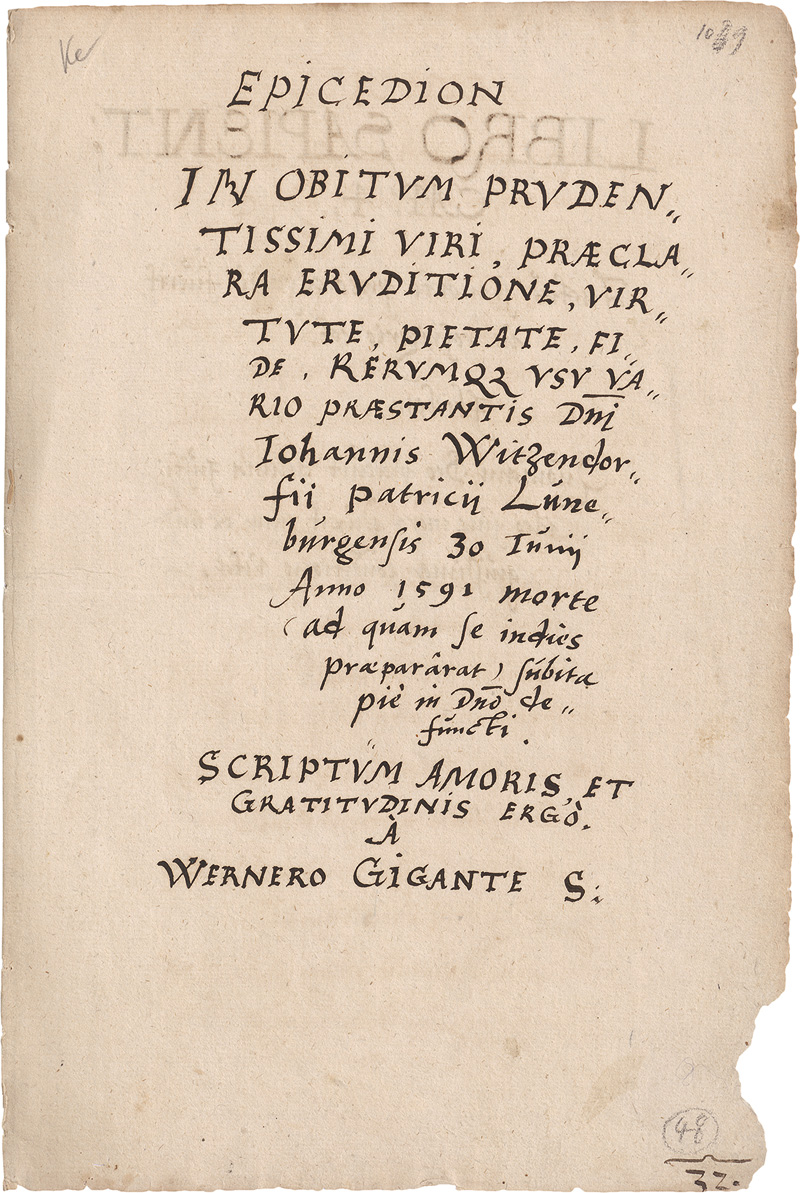 Ke
1089
EPICEDION
IN OBITVM PRVDEN„
TISSIMI VIRI, PRÆCLA„
RA ERVDITIONE, VIR„
TVTE, PIETATE, FI„
DE, RERVMQꝫ VSV VA„
RIO PRÆSTANTIS Dn̄i
Iohannis Witzendor„
fii Patricii Lúne„
búrgenſis 30 Iúnij
Anno 1591 morte
(ad quám ſe indies
præparârat) súbita
piè in Dnō de„
fúncti.
SCRIPTVM AMORIS, ET
GRATITVDINIS ERGÒ.
À
WERNERO GIGANTE S:
48
32.